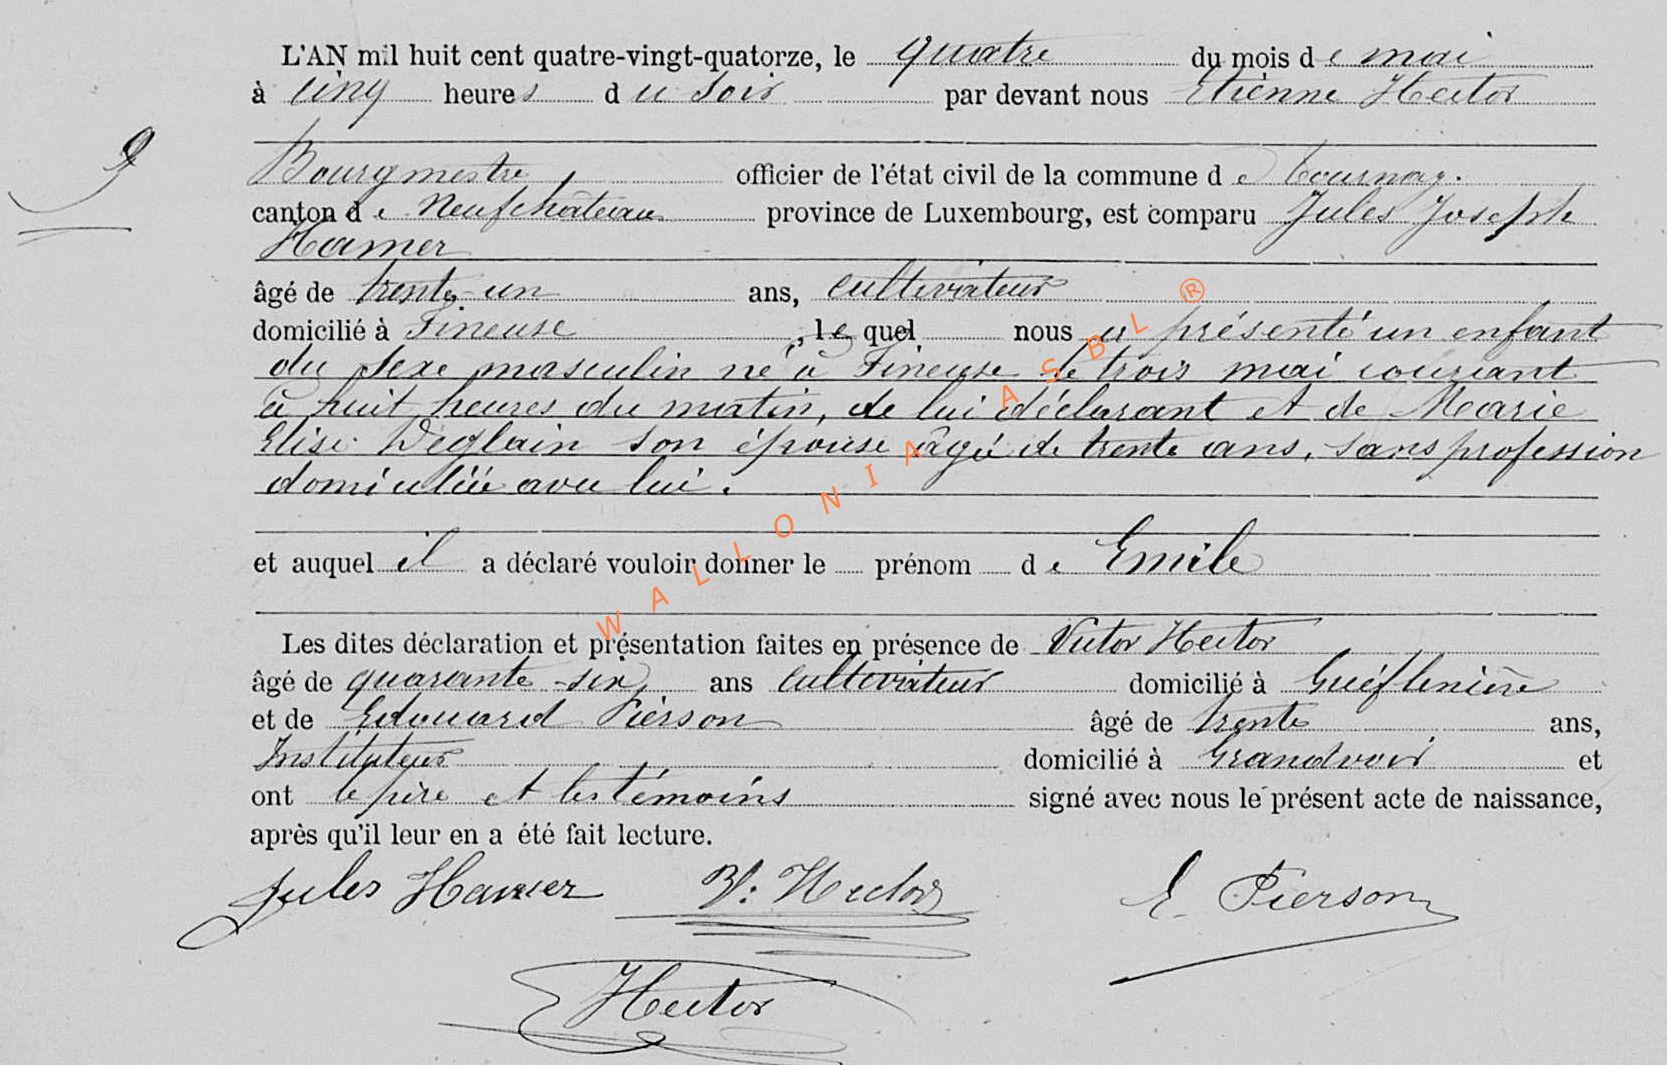 L'AN mil huit cent quatre-vingt-quatorze, le quatre du mois de mai
à cinq heures du soir par devant nous Etienne Hector
9
Bourgmestre, officier de l'état civil de la commune de Tournay.
canton de Neufchâteau province de Luxembourg, est comparu Jules Joseph
Hamer
âgé de trente-un ans, cultivateur
domicilié à Fineuse, lequel nous a présenté un enfant
du sexe masculin né à Fineuse le trois mai courant
à huit heures du matin, de lui déclarant et de Marie
Elise Deglain son épouse âgée de trente ans, sans profession
domiciliée avec lui.
et auquel il a déclaré vouloir donner le prénom de Emile
Les dites déclaration et présentation faites en présence de Victor Hector
âgé de quarante-six, ans cultivateur domicilié à
et de Edouard Pierson âgé de trente ans,
Instituteur domicilié à Grandvoir et
ont le père et les témoins signé avec nous le présent acte de naissance,
après qu'il leur en a été fait lecture.
Jules Hamer V: Hector E. Pierson
Hector
WALLONIA ASBL ®